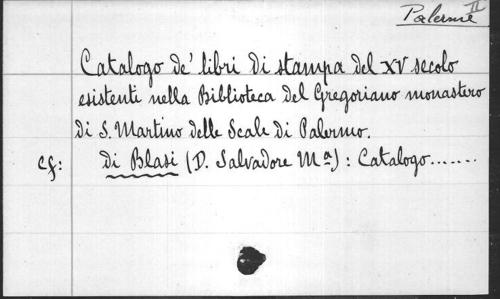 Palermo II
Catalogo de' libri di stampa del XV secolo
esistenti nella Biblioteca del Gregoriano monastero
di S. Martino delle Scale di Palermo.
cf: di Blasi (D. Salvadore Mª): Catalogo.......